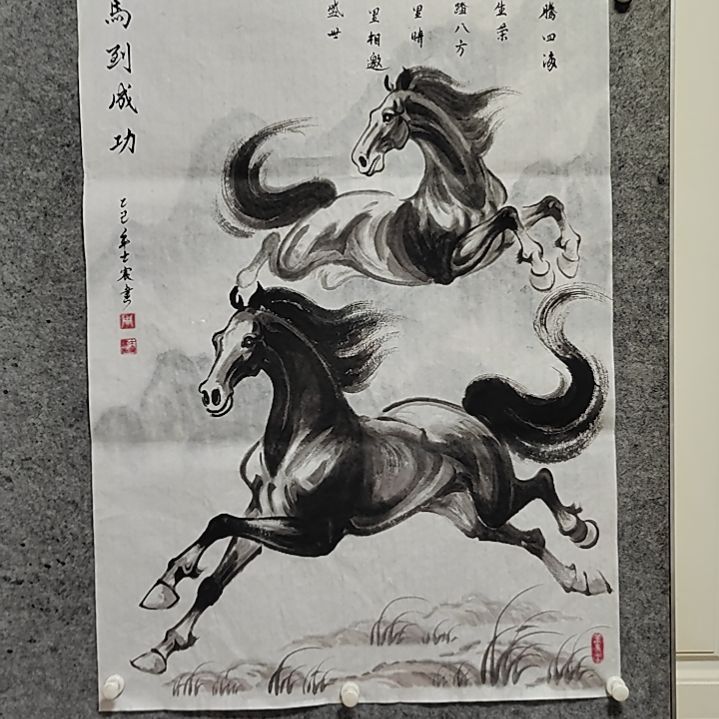 腾四海
生荣
踏八方
里
里相邀
盛世
馬到成功
乙巳年士書